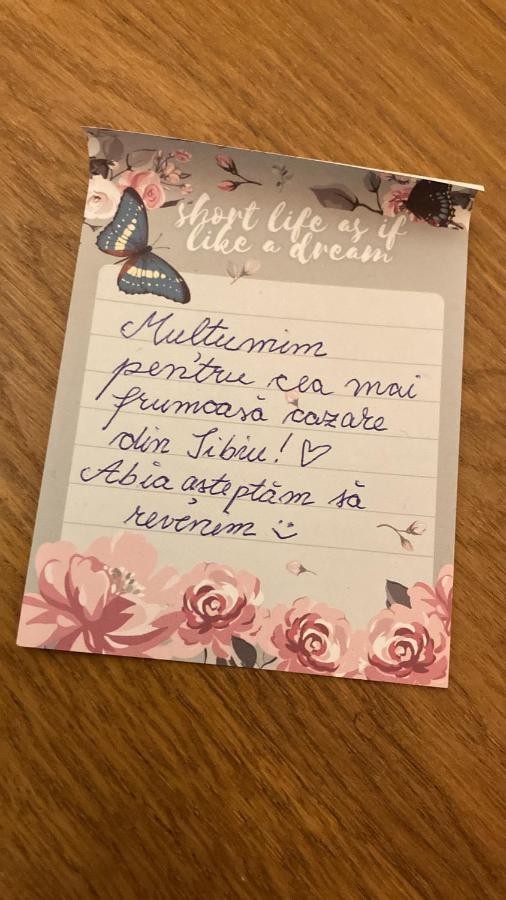 short life as if
like a dream
Mulțumim
pentru cea mai
frumoasă cazare
din Sibiu! ♡
Abia așteptăm să
revenem :)